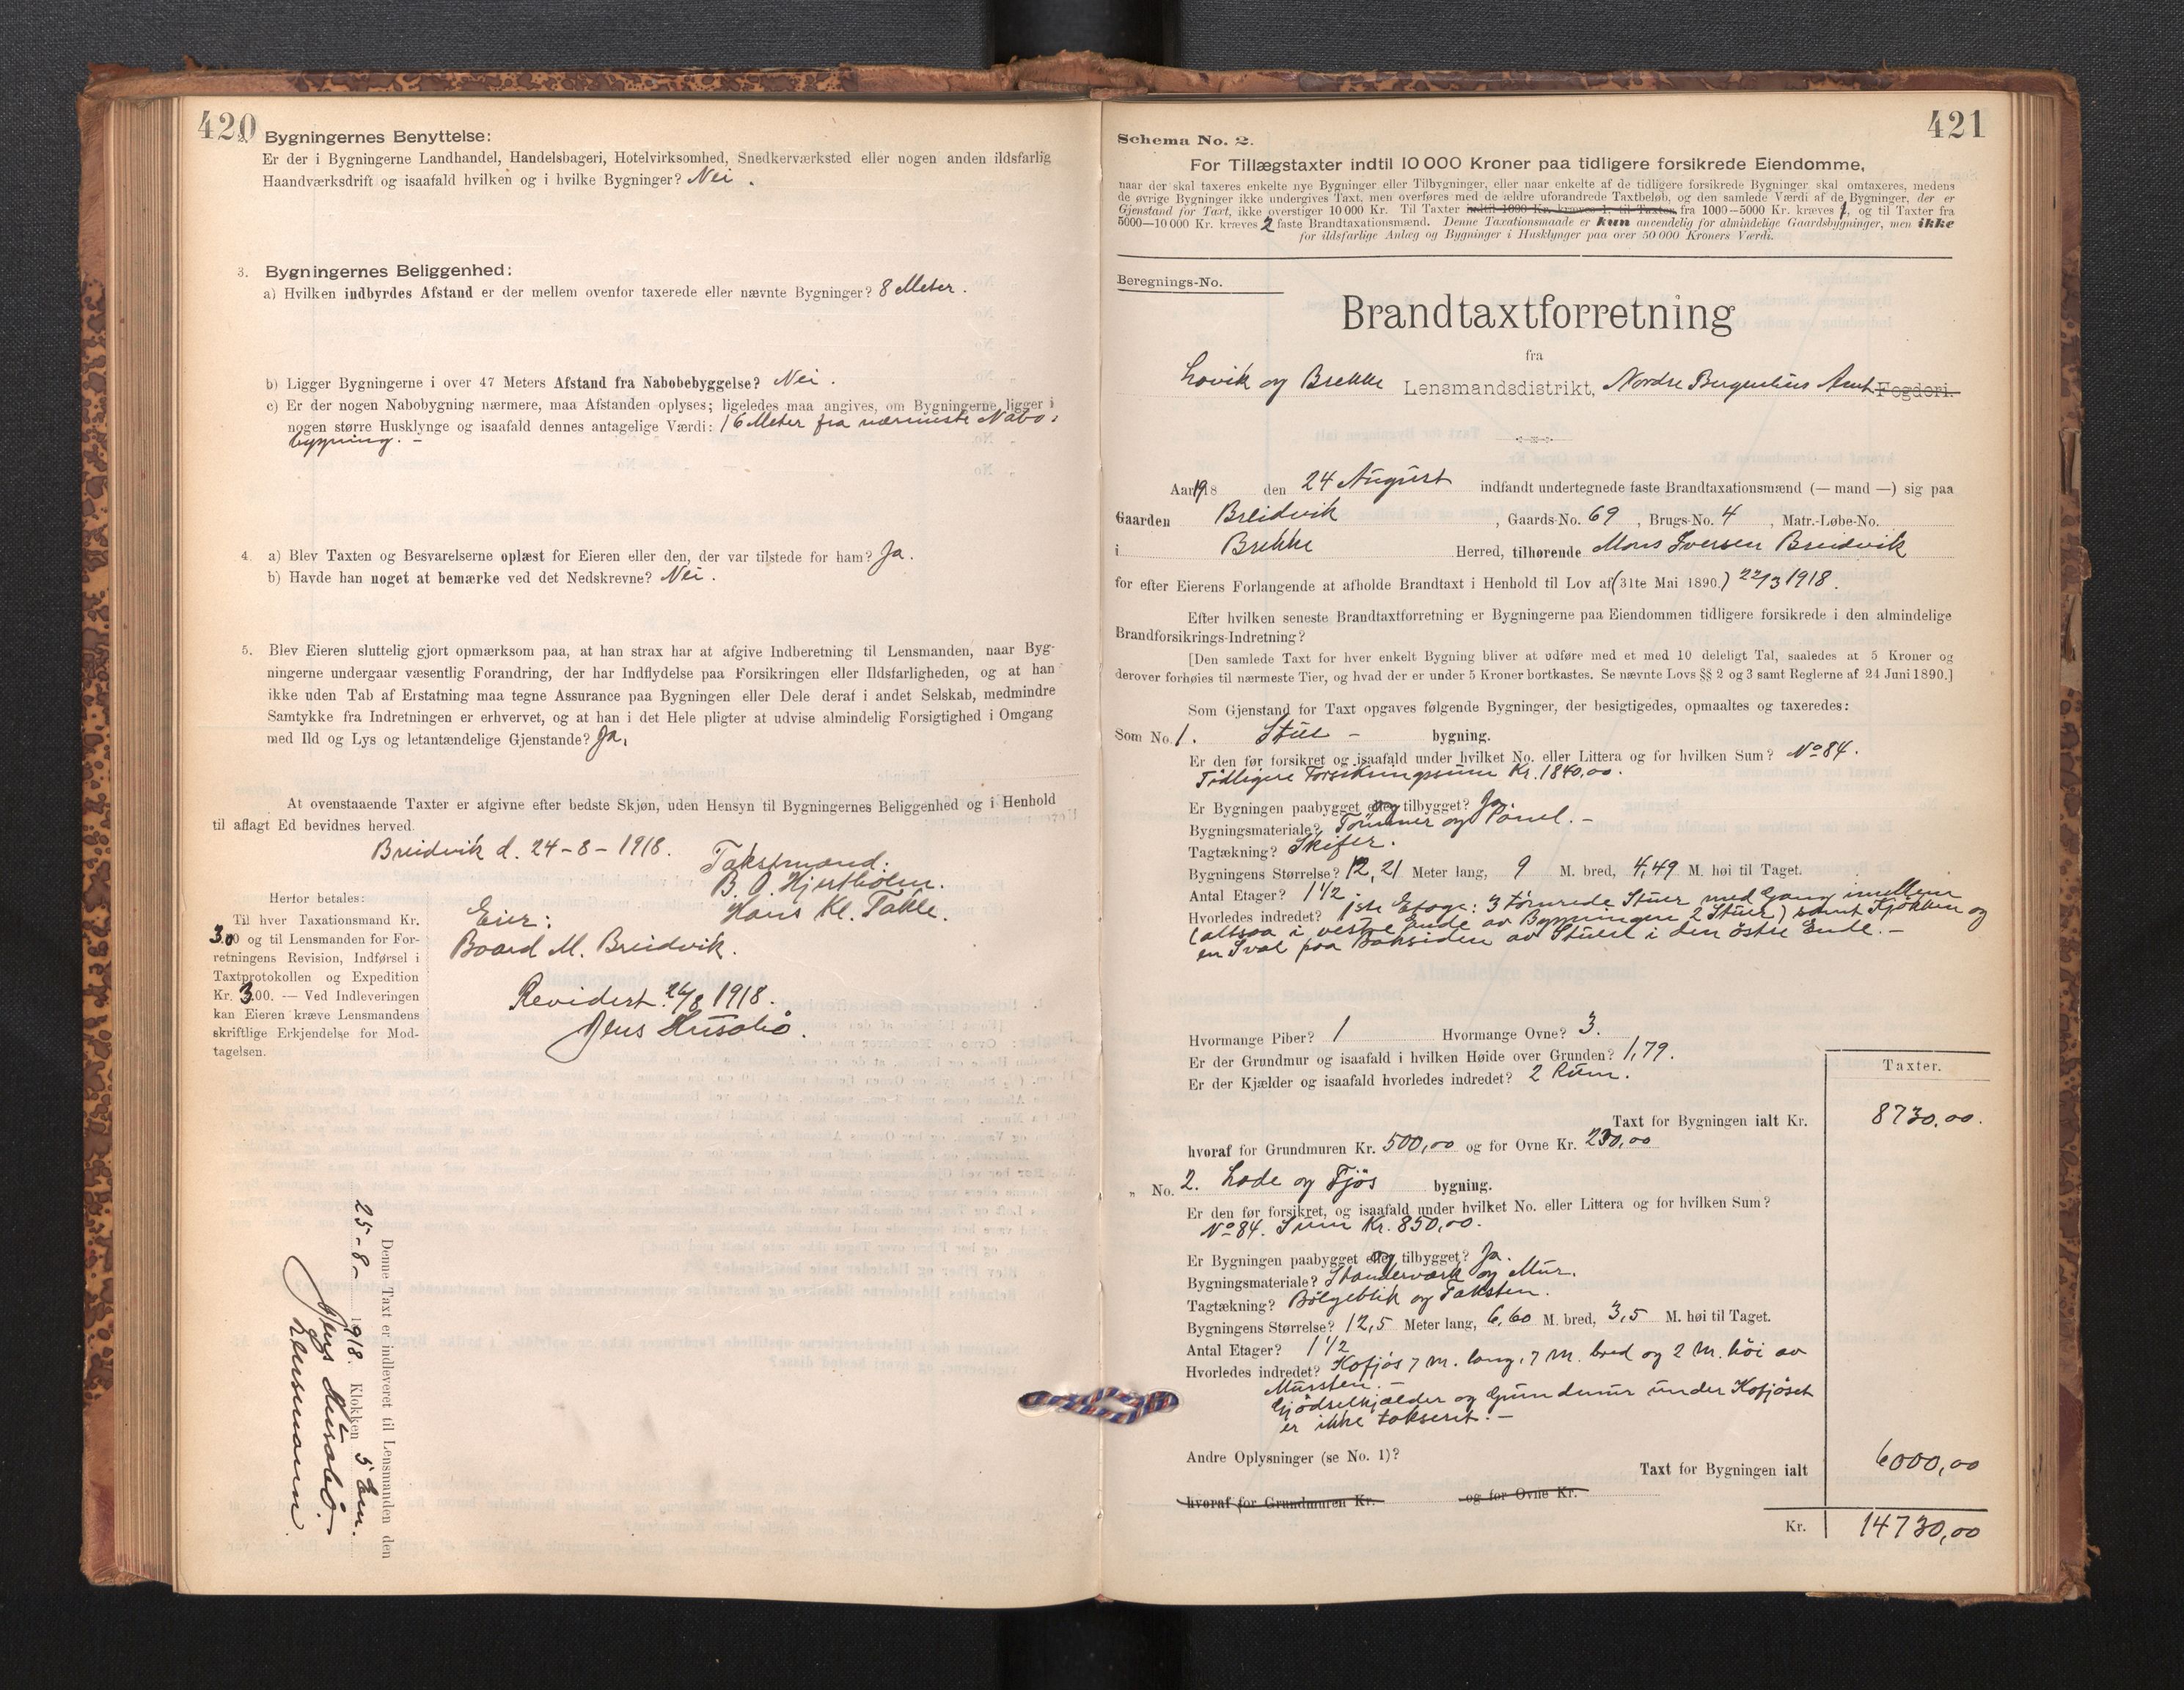 420
2. Bygningernes Benyttelse:
Er der i Bygningerne Landhandel, Handelsbageri, Hotelvirksomhed, Snedkerværksted eller nogen anden ildsfarlig
Haandværksdrift og isaafald hvilken og i hvilke Bygninger? Nei.
3. Bygningernes Beliggenhed:
a) Hvilken indbyrdes Afstand er der mellem ovenfor taxerede eller nævnte Bygninger? 8 Meter.
b) Ligger Bygningerne i over 47 Meters Afstand fra Nabobebyggelse? Nei.
c) Er der nogen Nabobygning nærmere, maa Afstanden oplyses; ligeledes maa angives, om Bygningerne ligger i
nogen større Husklynge og isaafald dennes antagelige Værdi: 16 Meter fra nærmeste Nabo-
bygning. -
4. a) Blev Taxten og Besvarelserne oplæst for Eieren eller den, der var tilstede for ham? Ja.
b) Havde han noget at bemærke ved det Nedskrevne? Nei.
5. Blev Eieren sluttelig gjort opmærksom paa, at han strax har at afgive Indberetning til Lensmanden, naar Byg-
ningerne undergaar væsentlig Forandring, der har Indflydelse paa Forsikringen eller Ildsfarligheden, og at han
ikke uden Tab af Erstatning maa tegne Assurance paa Bygningen eller Dele deraf i andet Selskab, medmindre
Samtykke fra Indretningen er erhvervet, og at han i det Hele pligter at udvise almindelig Forsigtighed i Omgang
med Ild og Lys og letantændelige Gjenstande? Ja.
At ovenstaaende Taxter er afgivne efter bedste Skjøn, uden Hensyn til Bygningernes Beliggenhed og i Henhold
til aflagt Ed bevidnes herved.
Breidvik d. 24-8-1918.
Takstmænd:
B. O. Hjertholm.
Hans Kl. Takle.
Eier:
Baard M. Breidvik.
Revidert 26/8 1918.
Jens Husabø.
Herfor betales:
Til hver Taxationsmand Kr.
3.00 og til Lensmanden for For-
retningens Revision, Indførsel i
Taxtprotokollen og Expedition
Kr. 3.00. — Ved Indleveringen
kan Eieren kræve Lensmandens
skriftlige Erkjendelse for Mod-
tagelsen.
Denne Taxt er indleveret til Lensmanden den
25-8-1918. Klokken 5 Em.
Jens Husabø.
Lensmann.
421
Schema No. 2.
For Tillægstaxter indtil 10 000 Kroner paa tidligere forsikrede Eiendomme,
naar der skal taxeres enkelte nye Bygninger eller Tilbygninger, eller naar enkelte af de tidligere forsikrede Bygninger skal omtaxeres, medens
de øvrige Bygninger ikke undergives Taxt, men overføres med de ældre uforandrede Taxtbeløb, og den samlede Værdi af de Bygninger, der er
Gjenstand for Taxt, ikke overstiger 10 000 Kr. Til Taxter indtil 1000 Kr. kræves 1, til Taxter fra 1000—5000 Kr. kræves 1, og til Taxter fra
5000—10 000 Kr. kræves 2 faste Brandtaxationsmænd. Denne Taxationsmaade er kun anvendelig for almindelige Gaardsbygninger, men ikke
for ildsfarlige Anlæg og Bygninger i Husklynger paa over 50 000 Kroners Værdi.
Beregnings-No.
Brandtaxtforretning
fra
Lavik og Brekke Lensmandsdistrikt, Nordre Bergenhus Amt Fogderi.
Aar 1918 den 24 August indfandt undertegnede faste Brandtaxationsmænd (— mand —) sig paa
Gaarden Breidvik, Gaards-No. 69, Brugs-No. 4, Matr.-Løbe-No.
i Brekke Herred, tilhørende Mons Iversen Breidvik
for efter Eierens Forlangende at afholde Brandtaxt i Henhold til Lov af (31te Mai 1890.) 22/3 1918.
Efter hvilken seneste Brandtaxtforretning er Bygningerne paa Eiendommen tidligere forsikrede i den almindelige
Brandforsikrings-Indretning?
[Den samlede Taxt for hver enkelt Bygning bliver at udføre med et med 10 deleligt Tal, saaledes at 5 Kroner og
derover forhøies til nærmeste Tier, og hvad der er under 5 Kroner bortkastes. Se nævnte Lovs §§ 2 og 3 samt Reglerne af 24 Juni 1890.]
Som Gjenstand for Taxt opgaves følgende Bygninger, der besigtigedes, opmaaltes og taxeredes:
Som No. 1. Stue - bygning.
Er den før forsikret og isaafald under hvilket No. eller Littera og for hvilken Sum? No 84.
Tidligere Forsikringssum Kr. 1840,00.
Er Bygningen paabygget og tilbygget? Ja.
Bygningsmateriale? Tømmer og Panel. -
Tagtækning? Skifer.
Bygningens Størrelse? 12,21 Meter lang, 9 M. bred, 4,49 M. høi til Taget.
Antal Etager? 1 1/2
Hvorledes indredet? 1ste Etage: 3 tømrede Stuer med Gang imellem
(altsaa i vestre Ende av Bygningen 2 Stuer) samt Kjøkken og
en Sval paa Baksiden av Stuen i den østre Ende. -
Hvormange Piber? 1 Hvormange Ovne? 3.
Er der Grundmur og isaafald i hvilken Høide over Grunden? 1,79.
Er der Kjælder og isaafald hvorledes indredet? 2 Rum.
Taxter.
Taxt for Bygningen ialt Kr. 8730,00.
hvoraf for Grundmuren Kr. 500,00 og for Ovne Kr. 230,00
" No. 2. Lade og Fjøs bygning.
Er den før forsikret, og isaafald under hvilket No. eller Littera og for hvilken Sum?
No 84. Sum Kr. 850,00.
Er Bygningen paabygget og tilbygget? Ja.
Bygningsmateriale? Standerværk og Mur.
Tagtækning? Bølgeblik og Taksten.
Bygningens Størrelse? 12,5 Meter lang, 6,60 M. bred, 3,5 M. høi til Taget.
Antal Etager? 1 1/2
Hvorledes indredet? Kofjøs 7 m. lang, 7 m. bred og 2 m. høi av
Mursten. -
Gjødselkjælder og Grundmur under Kofjøset
er ikke takseret. -
Andre Oplysninger (se No. 1)?
Taxt for Bygningen ialt 6000,00
hvoraf for Grundmuren Kr. og for Ovne Kr.
Kr. 14730,00